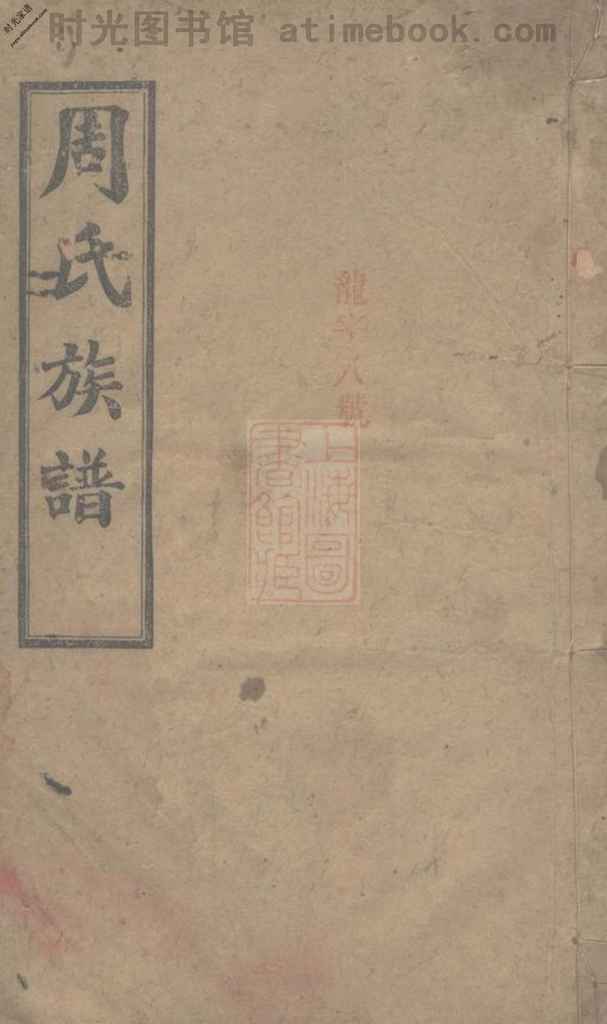 时光图书馆 atimebook.com
时光家谱
周氏族譜
龍字八號
上海圖書館藏